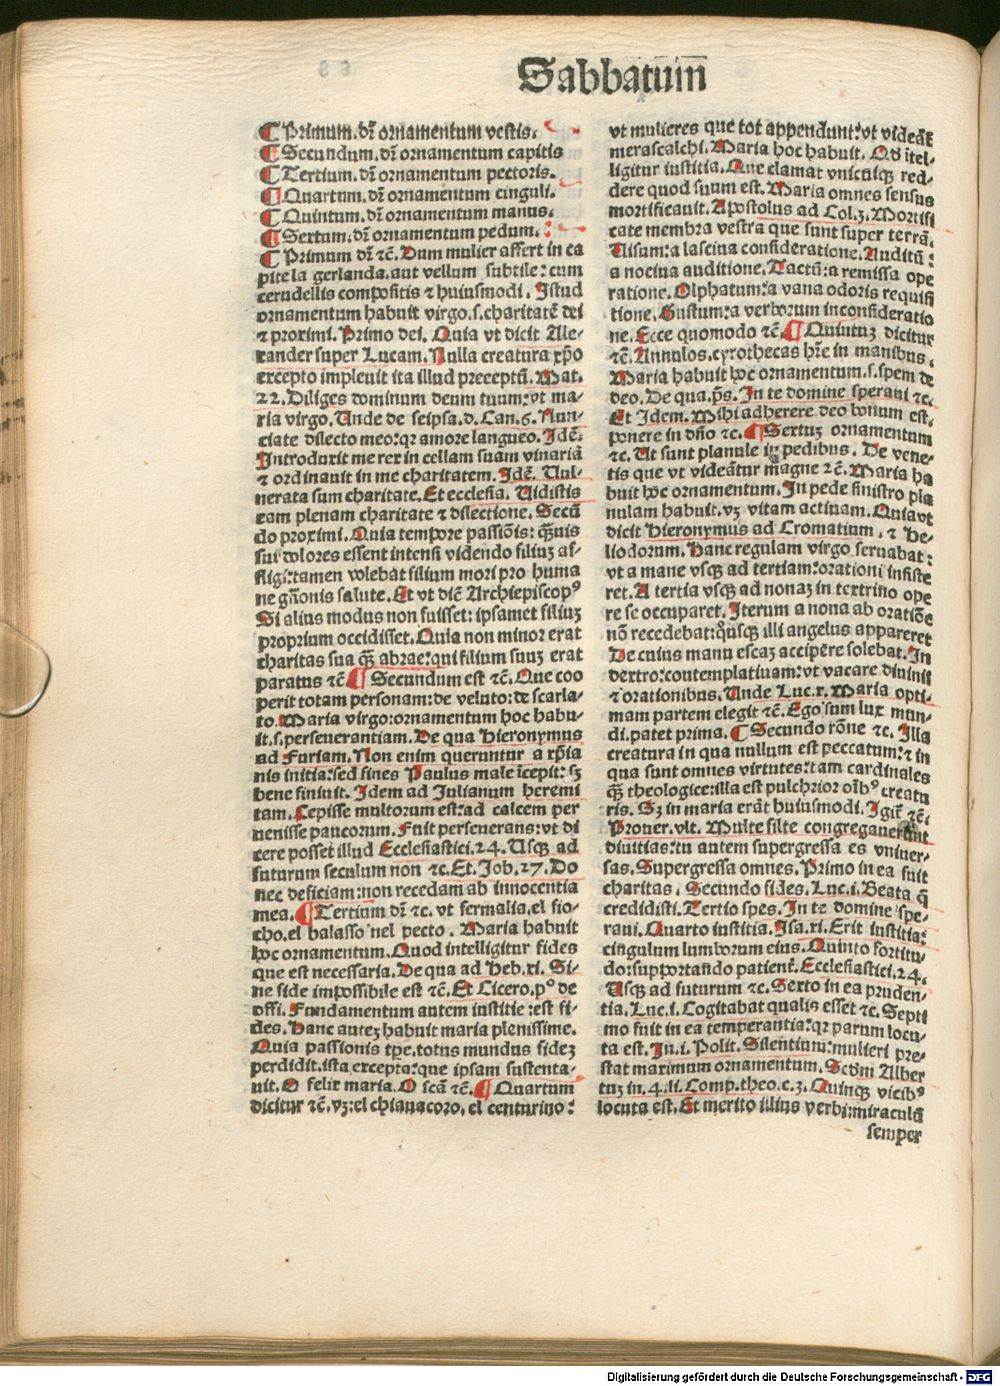 Sabbatum̄
¶ Primum. dr̄ ornamentum vestis.
¶ Secundum. dr̄ ornamentum capitis
¶ Tertium. dr̄ ornamentum pectoris.
¶ Quartum. dr̄ ornamentum cinguli.
¶ Quintum. dr̄ ornamentum manus.
¶ Sextum. dr̄ ornamentum pedum.
¶ Primum dr̄ ⁊c̄. Dum mulier affert in ca
pite la gerlanda. aut vellum subtile: cum
cerudellis compositis ⁊ huiusmodi. Istud
ornamentum habuit virgo. s. charitatē dei
⁊ proximi. Primo dei. Quia vt dicit Ale-
xander super Lucam. Nulla creatura xp̄o
excepto impleuit ita illud preceptū. Mat.
22. Diliges dominum deum tuum: vt ma-
ria virgo. Unde de seipsa. d. Can. 6. Nun-
ciate dilecto meo: qr amore langueo. Idē.
Introduxit me rex in cellam suam vinariā
⁊ ordinauit in me charitatem. Idē. Uul-
nerata sum charitate. Et ecclesia. Uidistis
eam plenam charitate ⁊ dilectione. Secū
do proximi. Quia tempore passiōis: q̄uis
sui dolores essent intensi videndo filiuz af-
fligi: tamen volebat filium mori pro huma
ne gn̄onis salute. Et vt dicē Archiepiscopꝰ
Si alius modus non fuisset: ipsamet filiuz
proprium occidisset. Quia non minor erat
charitas sua q̄ꝫ abrae: qui filium suuz erat
paratus ⁊c̄ ¶ Secundum est ⁊c̄. Que coo
perit totam personam: de veluto: de scarla-
to. Maria virgo: ornamentum hoc habu-
it. s. perseuerantiam. De qua Hieronymus
ad Furiam. Non enim queruntur a xp̄ia
nis initia: sed fines Paulus male īcepit: sꝫ
bene finiuit. Idem ad Julianum heremi
tam. Cepisse multorum est: ad calcem per
uenisse paucorum. Fuit perseuerans: vt di
cere posset illud Ecclesiastici. 24. Usqꝫ ad
futurum seculum non ⁊c. Et. Job. 27. Do
nec deficiam: non recedam ab innocentia
mea. ¶ Tertium dr̄ ⁊c. vt fermalis. el fio-
cho. el balasso nel pecto. Maria habuit
hoc ornamentum. Quod intelligitur fides
que est necessaria. De qua ad Heb. xi. Si-
ne fide impossibile est ⁊c̄. Et Cicero. pº de
offi. Fundamentum autem iustitie: est fi-
des. Hanc autez habuit maria plenissime.
Quia passionis tp̄e. totus mundus fidez
perdidit. ista excepta: que ipsam sustenta-
uit. O felix maria. O scā ⁊c̄. ¶ Quartum
dicitur ⁊c̄. vꝫ: el chiauacoro, el centurino:
vt mulieres que tot appendunt: vt videāt̄
merascalchi. Maria hoc habuit. Qd̄ ītel-
ligitur iustitia. Que clamat vnicuiqꝫ red-
dere quod suum est. Maria omnes sensus
mortificauit. Apostolus ad Col. 3. Mortifi
cate membra vestra que sunt super terrā.
Uisum: a lasciua consideratione. Auditū:
a nociua auditione. Tactū: a remissa ope
ratione. Olphatum: a vana odoris requisi
tione. Gustum: a verborum inconsideratio
ne. Ecce quomodo ⁊c̄ ¶ Quintuz dicitur
⁊c̄. Annulos. cyrothecas hr̄e in manibus.
Maria habuit hoc ornamentum. s. spem de
deo. De qua. ps̄. In te domine speraui ⁊c.
Et Idem. Mihi adherere deo bonum est.
ponere in dn̄o ⁊c. ¶ Sextuz ornamentum
⁊c. Ut sunt planule in pedibus. De vene-
tis que vt videātur magne ⁊c̄. Maria ha
buit hoc ornamentum. In pede sinistro pla
nulam habuit. vꝫ vitam actiuam. Quia vt
dicit Hieronymus ad Cromatium. ⁊ He-
liodorum. Hanc regulam virgo seruabat:
vt a mane vsqꝫ ad tertiam: orationi insiste
ret. A tertia vsqꝫ ad nonaz in textrino ope
re se occuparet. Iterum a nona ab oratiōe
nō recedebat: qūsqꝫ illi angelus appareret
De cuius manu escaz accipere solebat. In
dextro: contemplatiuam: vt vacare diuinis
⁊ orationibus. Unde Luc. x. Maria opti-
mam partem elegit ⁊c̄. Ego sum lux mun-
di. patet prima. ¶ Secundo rōne ⁊c. Illa
creatura in qua nullum est peccatum: ⁊ in
qua sunt omnes virtutes: tam cardinales
q̄ꝫ theologice: illa est pulchrior oībꝰ creatu
ris. Sꝫ in maria erāt huiusmodi. Igit̄ ⁊c.
Prouer. vlt. Multe filie congregauerunt
diuitias: tu autem supergressa es vniuer-
sas. Supergressa omnes. Primo in ea fuit
charitas. Secundo fides. Luc. i. Beata q̄
credidisti. Tertio spes. In te domine spe-
raui. Quarto iustitia. Isa. xi. Erit iustitia:
cingulum lumborum eius. Quinto fortitu-
do: supportando patient̄. Ecclesiastici. 24.
Usqꝫ ad futurum ⁊c. Sexto in ea pruden-
tia. Luc. i. Cogitabat qualis esset ⁊c. Septi
mo fuit in ea temperantia: qr parum locu-
ta est. In. i. Polit. Silentium: mulieri pre-
stat maximum ornamentum. Scd̄m Alber
tuz in. 4. li. Comp. theo. c. 3. Quinqꝫ vicibꝰ
locuta est. Et merito illius verbi: miraculū
semper
Digitalisierung gefördert durch die Deutsche Forschungsgemeinschaft - DFG